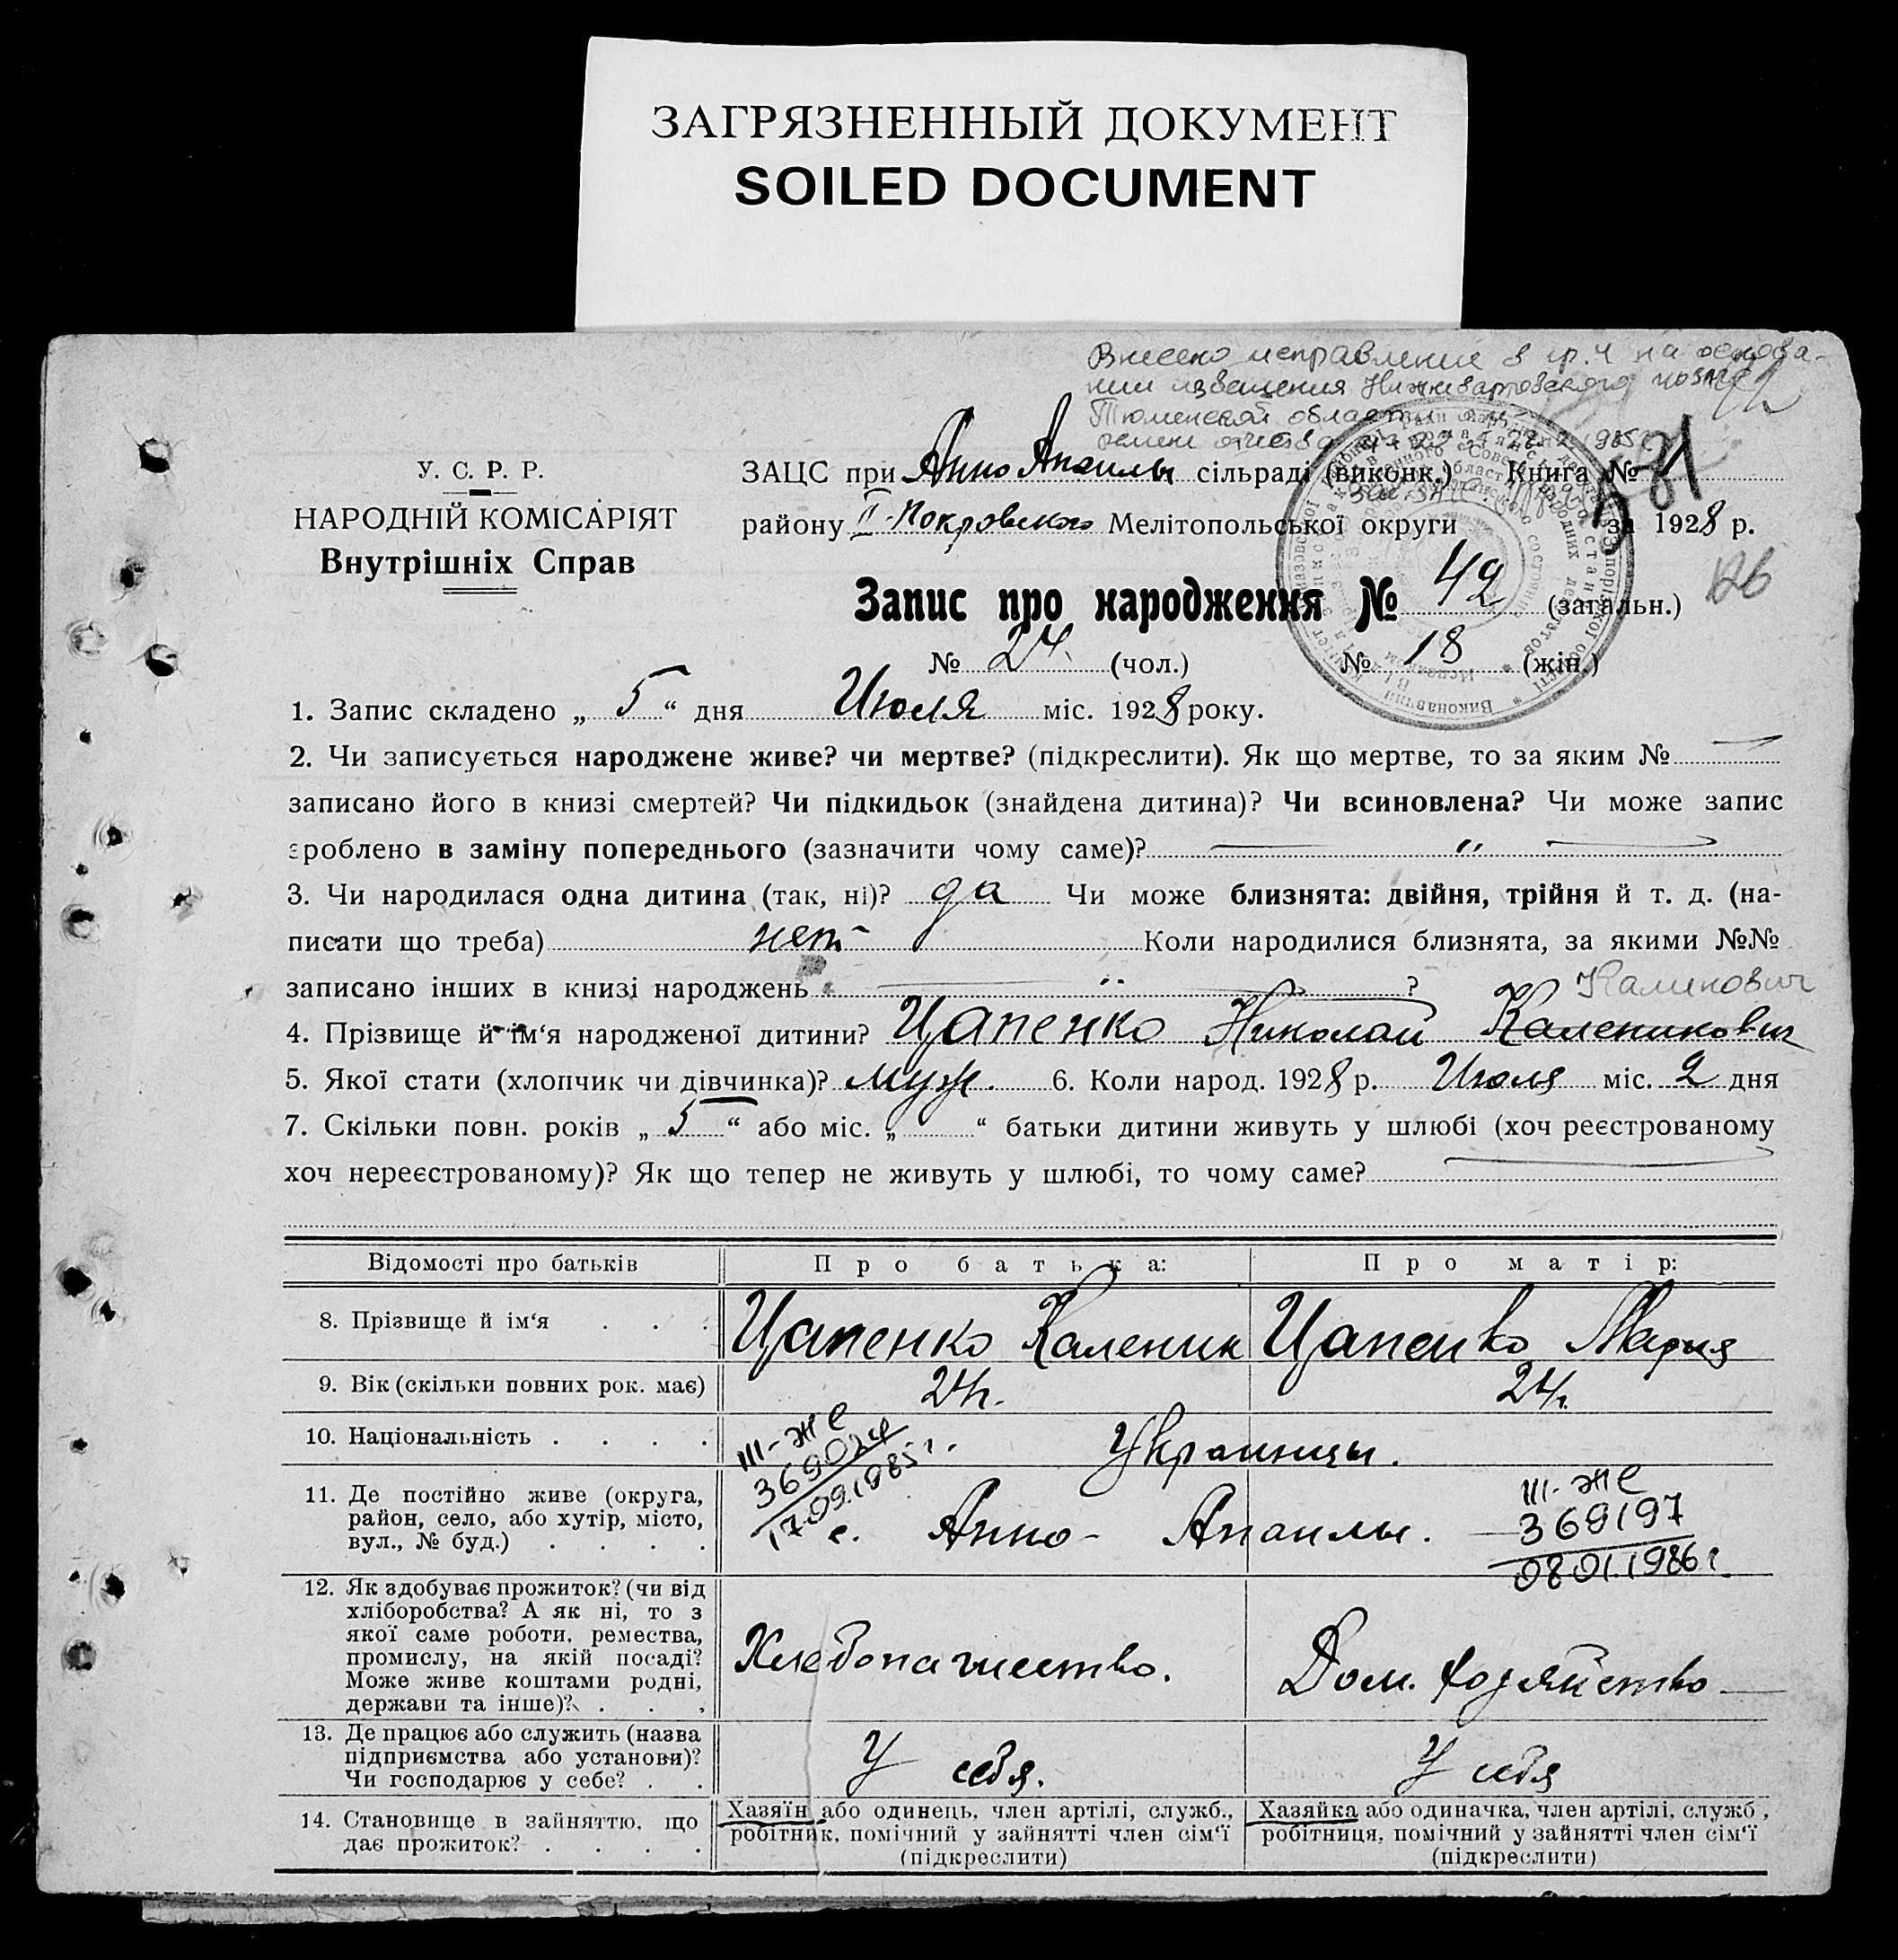 ЗАГРЯЗНЕННЫЙ ДОКУМЕНТ
SOILED DOCUMENT
Внесено исправление в гр. 4 на основа-
нии извещения Нижневартовского
Тюменской области
У. С. Р. Р.
НАРОДНІЙ КОМІСАРІЯТ
Внутрішніх Справ
ЗАЦС при Анно Апанлы сільраді (виконк.) Книга № 1
району II-Покровского Мелітопольської округи за 1928 р.
126
Запис про народження № 42 (загальн.)
№ 24. (чол.) № 18 (жін.)
1. Запис складено „ 5 “ дня Июля міс. 1928 року.
2. Чи записується народжене живе? чи мертве? (підкреслити). Як що мертве, то за яким № —
записано його в книзі смертей? Чи підкидьок (знайдена дитина)? Чи всиновлена? Чи може запис
зроблено в заміну попереднього (зазначити чому саме)? — „ —
3. Чи народилася одна дитина (так, ні)? да Чи може близнята: двійня, трійня й т. д. (на-
писати що треба) нет Коли народилися близнята, за якими №№
записано інших в книзі народжень — „ — ? Калинович
4. Прізвище й ім‘я народженої дитини? Цапенко Николай Каленикович
5. Якої стати (хлопчик чи дівчинка)? муж. 6. Коли народ. 1928 р. Июля міс. 2 дня
7. Скільки повн. років „ 5 “ або міс. „ “ батьки дитини живуть у шлюбі (хоч реєстрованому
хоч нереєстрованому)? Як що тепер не живуть у шлюбі, то чому саме? —
Відомості про батьків Про батька: Про матір:
8. Прізвище й ім‘я . . . Цапенко Каленик Цапенко Мария
9. Вік (скільки повних рок. має) 24 г. 24 г.
10. Національність . . . . Украинцы.
III-ЖС
369024
17.09.1985 г.
11. Де постійно живе (округа,
район, село, або хутір, місто,
вул., № буд.) . . . .
с. Анно- Апанлы.
III-ЖС
369197
08.01.1986 г.
12. Як здобуває прожиток? (чи від
хліборобства? А як ні, то з
якої саме роботи, ремества,
промислу, на якій посаді?
Може живе коштами родні,
держави та інше)? . . .
Хлебопашество. Дом. хозяйство —
13. Де працює або служить (назва
підприємства або установи)?
Чи господарює у себе? . .
У себя. У себя
14. Становище в зайняттю, що
дає прожиток? . . . .
Хазяїн або одинець, член артілі, служб.,
робітник, помічний у зайнятті член сім‘ї
(підкреслити)
Хазяйка або одиначка, член артілі, служб.,
робітниця, помічний у зайнятті член сім‘ї
(підкреслити)